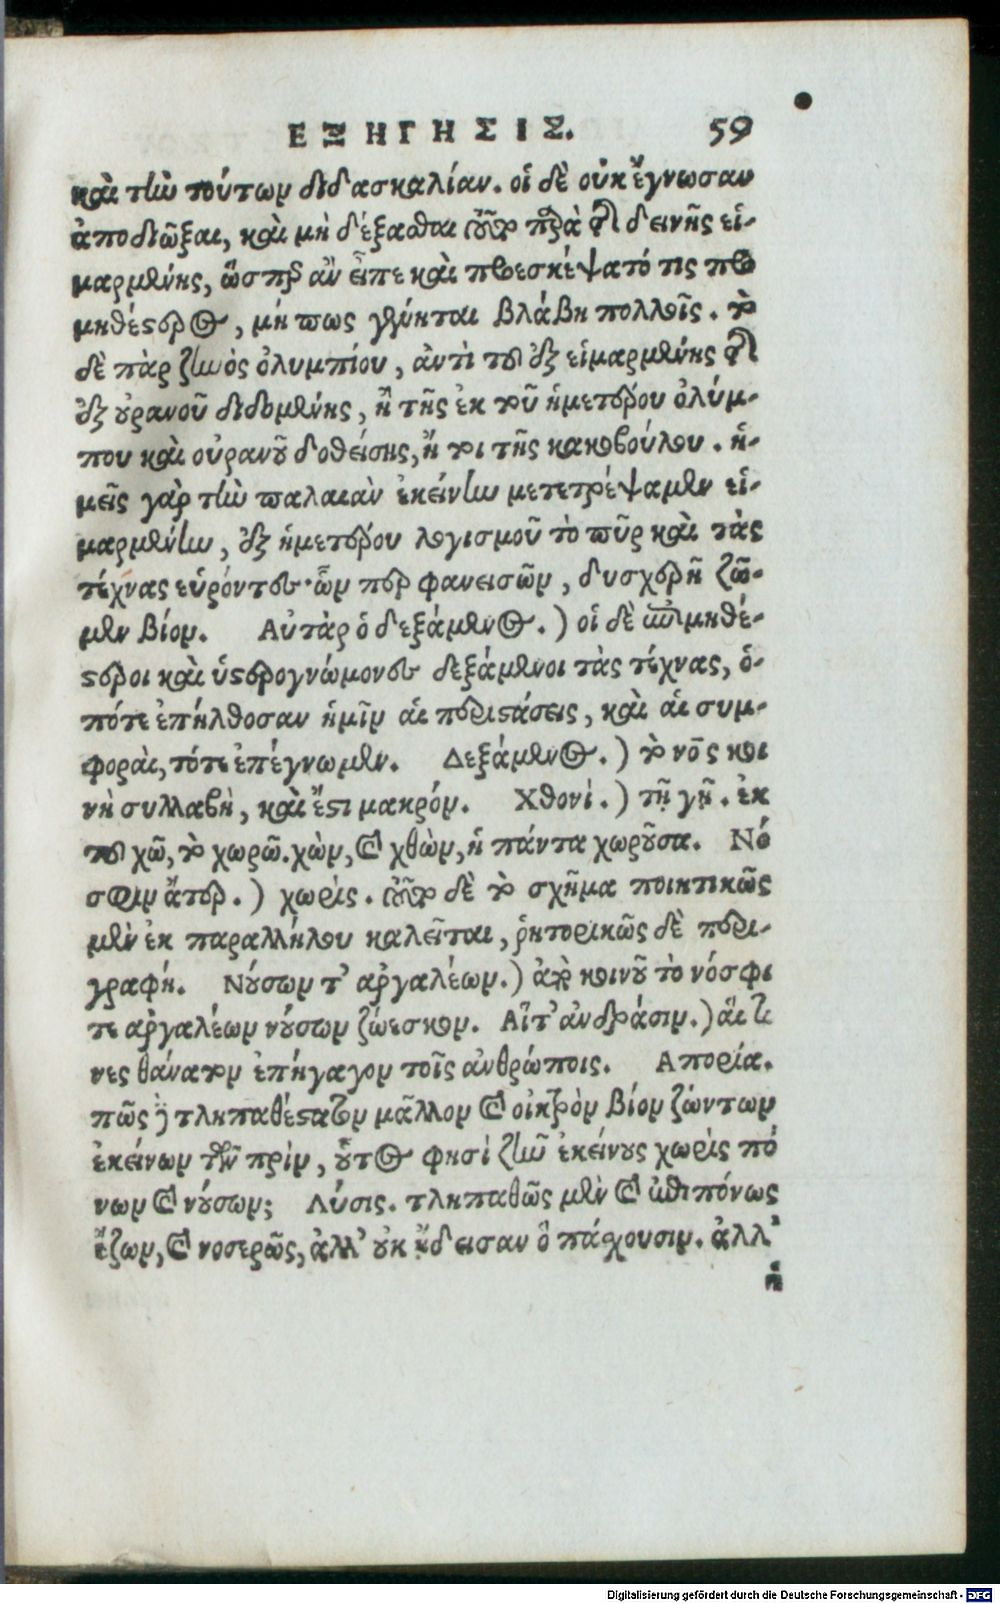 ΕΞΗΓΗΣΙΣ. 59
καὶ τὴν τούτων διδασκαλίαν. οἱ δὲ οὐκ ἔγνωσαν
ἀποδιῶξαι, καὶ μὴ δέξασθαι τοῦτο παρὰ τῆς δεινῆς εἱ-
μαρμένης, ὥσπερ ἂν εἶπε καὶ προεσκέψατό τις προ
μηθέστερος, μήπως γένηται βλάβη πολλοῖς. τὸ
δὲ πὰρ ζηνὸς ὀλυμπίου, ἀντὶ τοῦ ἐξ εἱμαρμένης τῆς
ἐξ οὐρανοῦ διδομένης, ἢ τῆς ἐκ τοῦ ἡμετέρου ὀλύμ-
που καὶ οὐρανοῦ δοθείσης, ἤτοι τῆς κακοβούλου. ἡ-
μεῖς γὰρ τὴν παλαιὰν ἐκείνην μετετρέψαμεν εἱ-
μαρμένην, ἐξ ἡμετέρου λογισμοῦ τὸ πῦρ καὶ τὰς
τέχνας εὑρόντες· ὧν περ φανεισῶν, δυσχερῆ ζῶ-
μεν βίον. Αὐτὰρ ὁ δεξάμενος.) οἱ δὲ ἐπιμηθέ-
στεροι καὶ ὑστερογνώμονες δεξάμενοι τὰς τέχνας, ὁ-
πότε ἐπήλθοσαν ἡμῖν αἱ περιστάσεις, καὶ αἱ συμ-
φοραὶ, τότε ἐπέγνωμεν. Δεξάμενος.) τὸ νος κοι
νὴ συλλαβὴ, καὶ ἔστι μακρόν. Χθονί.) τῇ γῇ. ἐκ
τοῦ χῶ, τὸ χωρῶ. χὼν, καὶ χθὼν, ἡ πάντα χωροῦσα. Νό
σφιν ἄτερ.) χωρίς. τοῦτο δὲ τὸ σχῆμα ποιητικῶς
μὲν ἐκ παραλλήλου καλεῖται, ῥητορικῶς δὲ περι-
γραφή. Νούσων τ' ἀργαλέων.) ἀπὸ κοινοῦ τὸ νόσφι
τε ἀργαλέων νούσων ζώεσκον. Αἵτ' ἀνδράσιν.) αἵ τι
νες θάνατον ἐπήγαγον τοῖς ἀνθρώποις. Απορία.
πῶς τληπαθέστατον μᾶλλον καὶ οἰκτρὸν βίον ζώντων
ἐκείνων τῶν πρὶν, οὗτος φησὶ ζῆν ἐκείνους χωρὶς πό
νων καὶ νούσων; Λύσις. τληπαθῶς μὲν καὶ ἐπιπόνως
ἔζων, καὶ νοσερῶς, ἀλλ' οὐκ ᾔδεισαν ὃ πάσχουσιν. ἀλλ'
ἡ
Digitalisierung gefördert durch die Deutsche Forschungsgemeinschaft - DFG